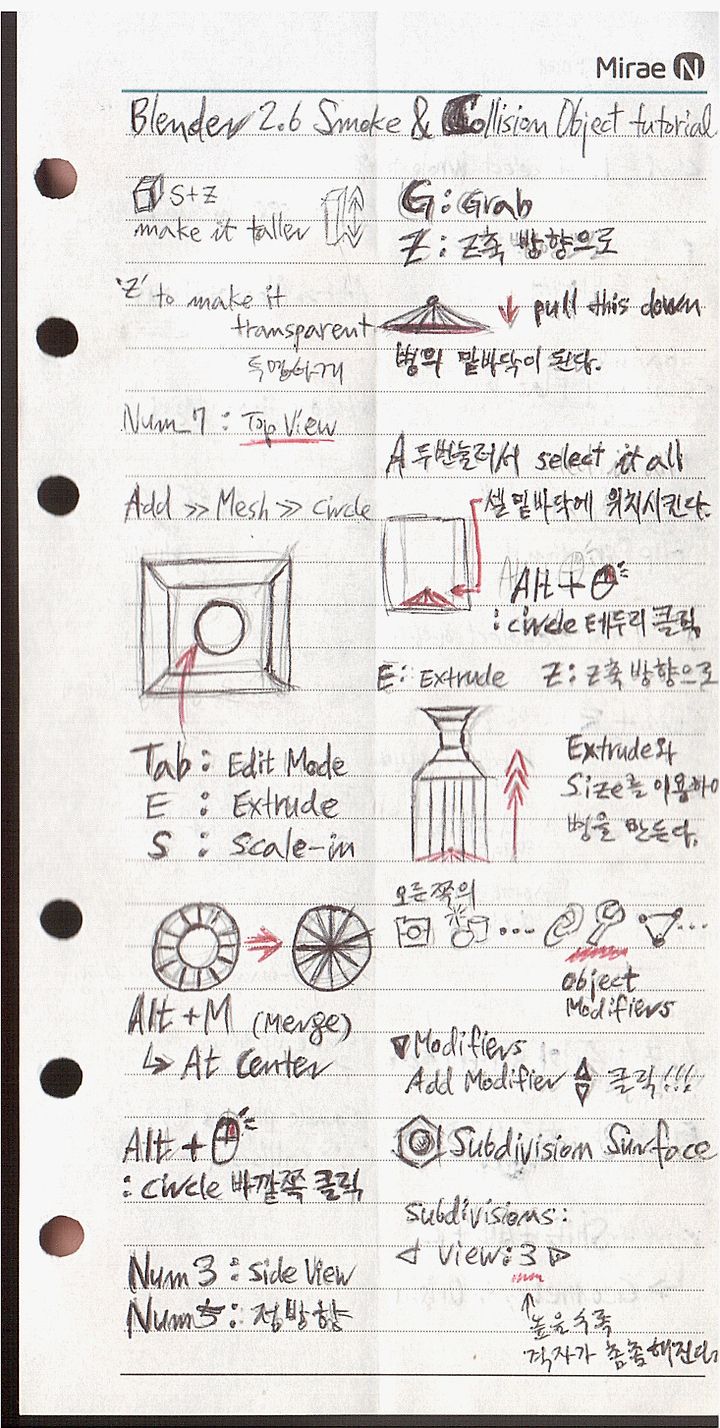 Mirae N
Blender 2.6 Smoke & Collision Object tutorial
S+Z
make it taller
'Z' to make it
transparent
투명하게
Num_7 : Top View
Add >> Mesh >> Circle
Tab : Edit Mode
E : Extrude
S : Scale-in
Alt + M (Merge)
↳ At Center
Alt +
: circle 바깥쪽 클릭
Num 3 : Side View
Num 5 : 정방향
G : Grab
Z : Z축 방향으로
↓ pull this down
병의 밑바닥이 된다.
A 두번눌러서 select it all
셀 밑바닥에 위치시킨다.
Alt +
: circle 테두리 클릭
E : Extrude Z : Z축 방향으로
Extrude와
Size를 이용하여
병을 만든다.
오른쪽의
...
...
object
Modifiers
▼Modifiers
Add Modifier 클릭!!!
Subdivision Surface
Subdivisions:
◁ View: 3 ▷
↑
높을수록
격자가 촘촘해진다.